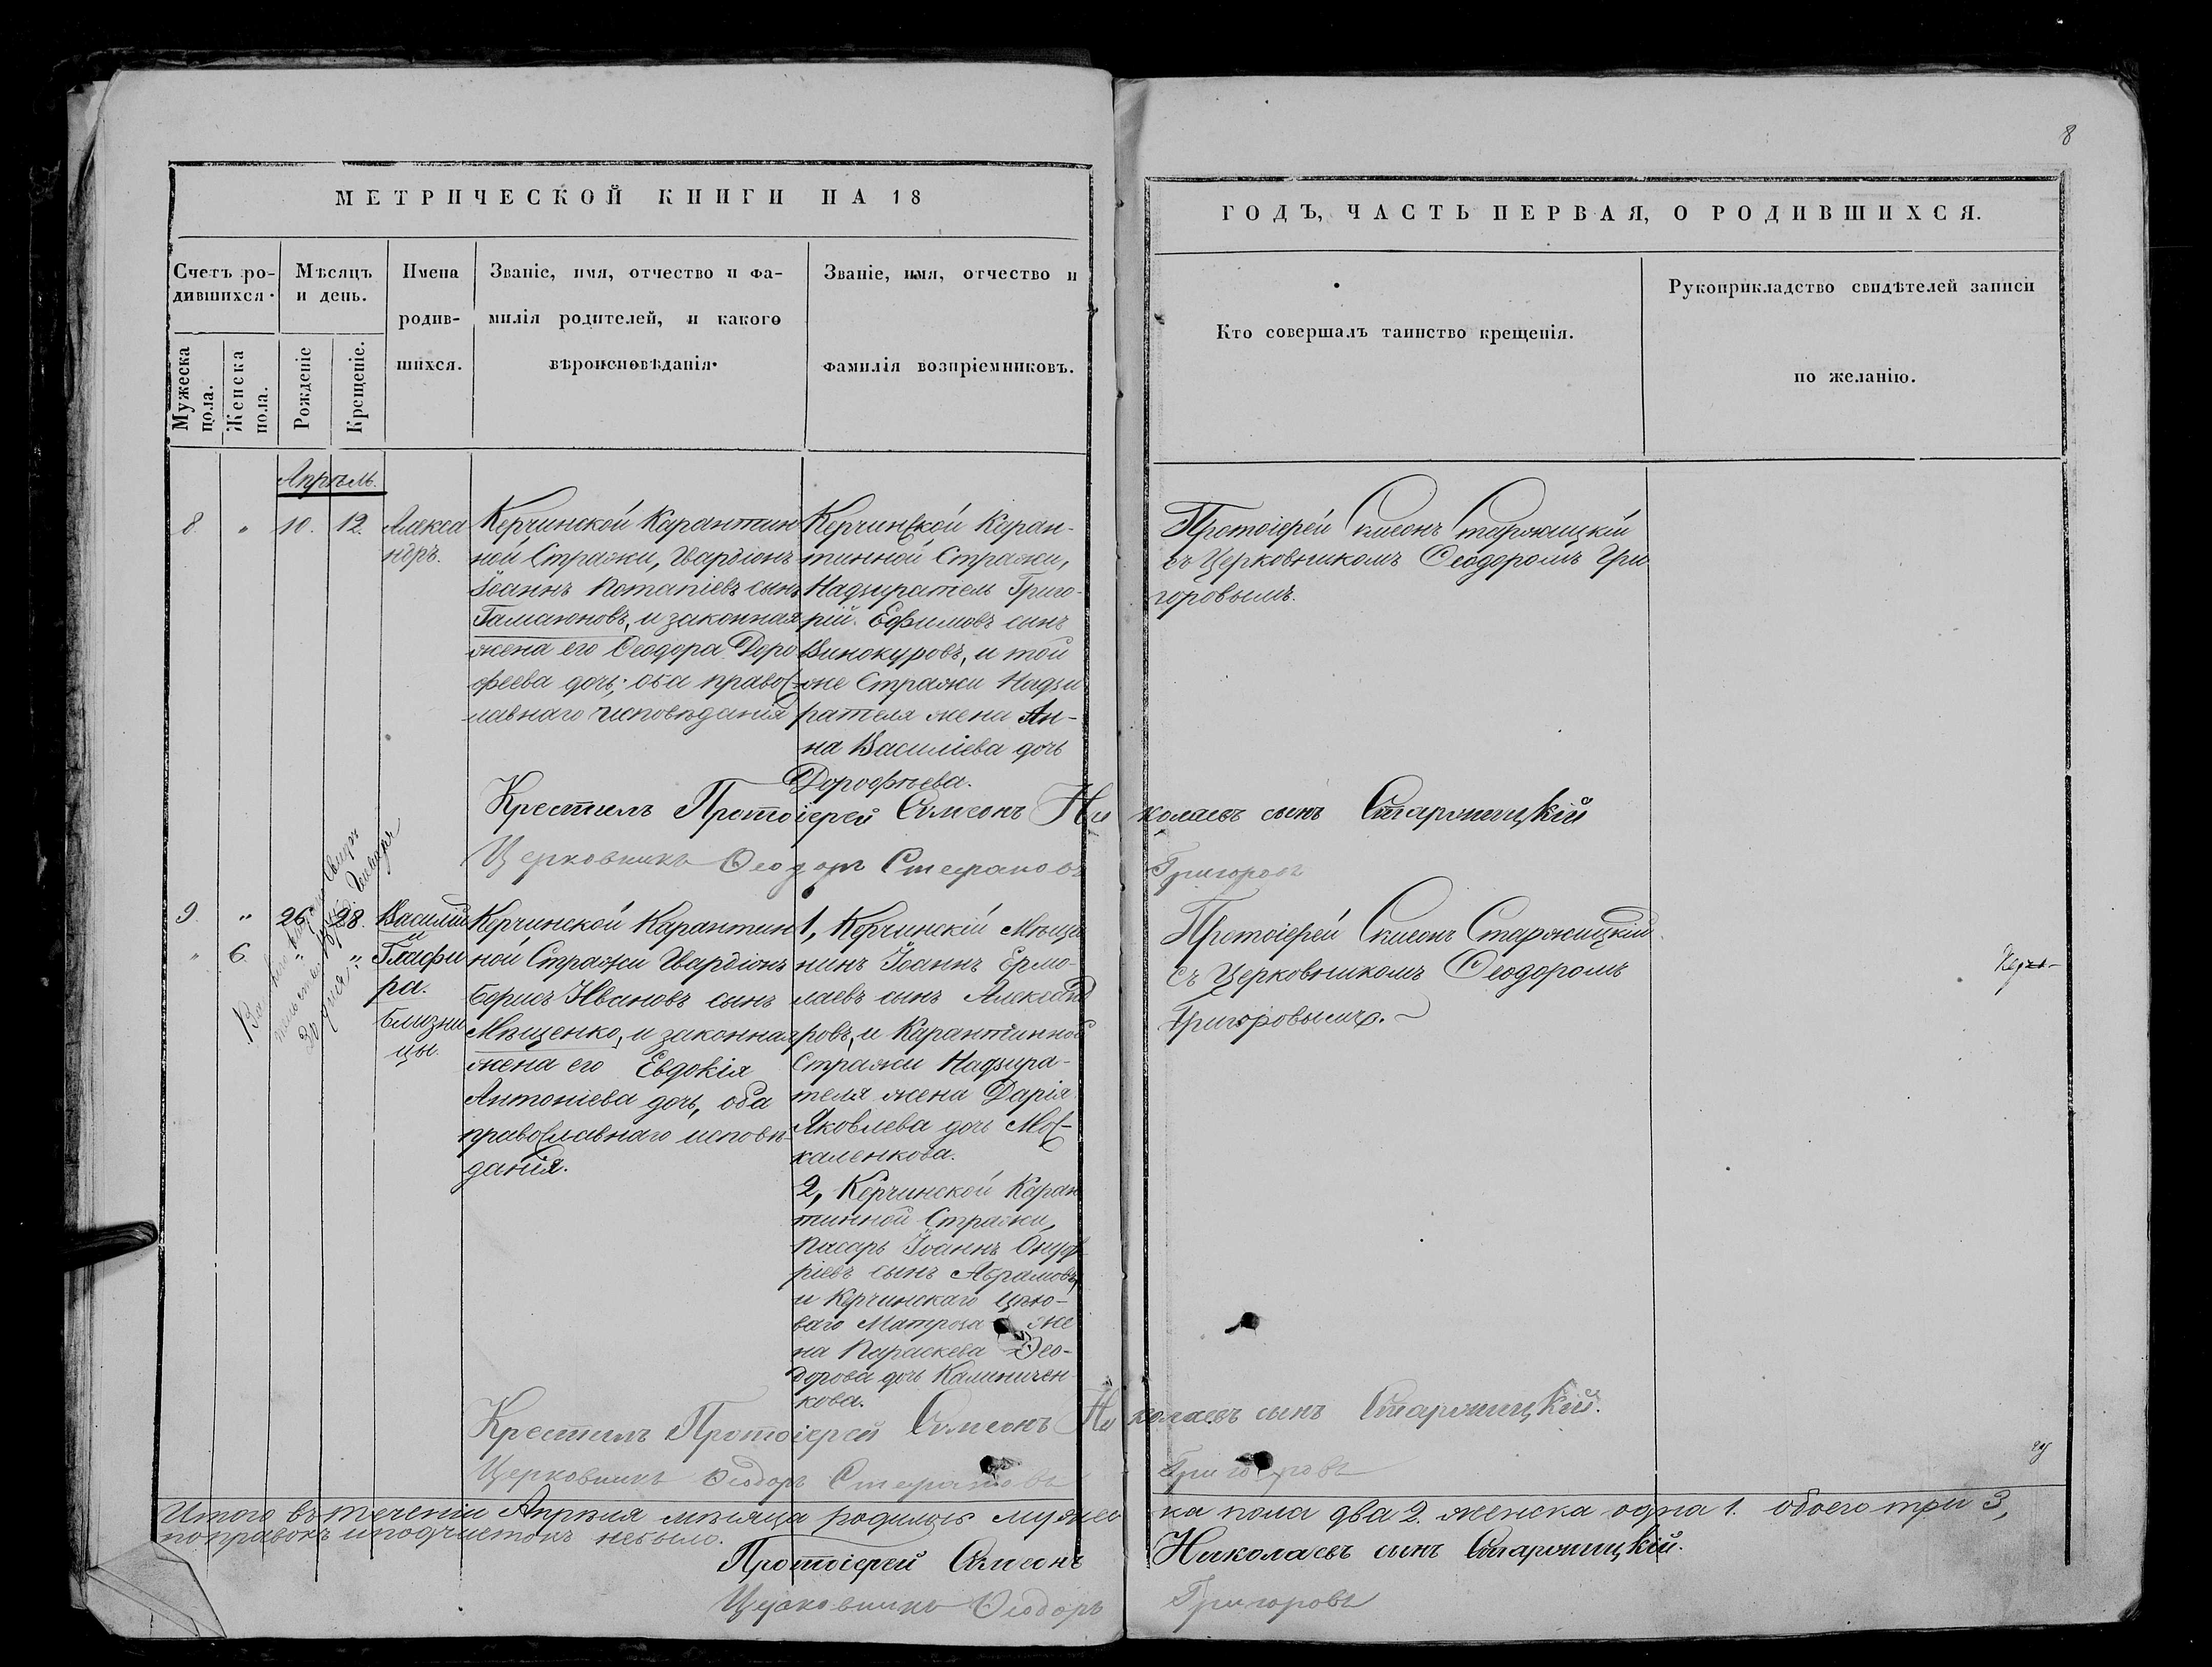 8
МЕТРИЧЕСКОЙ КНИГИ НА 18
ГОДЪ, ЧАСТЬ ПЕРВАЯ, О РОДИВШИХСЯ.
Счетъ ро-
дившихся.
Мужеска
пола.
Женска
пола.
Мѣсяцъ
и день.
Рожденіе
Крещеніе.
Имена
родив-
шихся.
Званіе, имя, отчество и фа-
милія родителей, и какого
вѣроисповѣданія.
Званіе, имя, отчество и
фамилія воспріемниковъ.
Кто совершалъ таинство крещенія.
Рукоприкладство свидѣтелей записи
по желанію.
Апрѣль.
8. " 10. 12.
Алекса
ндръ.
Керчинской Карантин
ной Стражи, Гвардіонъ
Іоаннъ Потапіевъ сынъ
Гамаюновъ, и законная
жена его Ѳеодора Доро
феева дочь; оба правос
лавнаго исповѣданія
Керчинской Каран-
тинной Стражи,
Надзиратель Григо-
рій Ефимовъ сынъ
Винокуровъ, и той
же Стражи Надзи
рателя жена Ан-
на Василіева дочь
Дорофѣева.
Протоіерей Сѵмеонъ Старжицкій
съ Церковникомъ Ѳеодоромъ Гри
горовымъ.
Крестилъ Протоіерей Сѵмеонъ Николаевъ сынъ Старжицкій
Церковникъ Ѳеодоръ Стефановъ Григоровъ
9. " 26. 28.
" 6. " "
Василій
и
Глафи
ра.
Близни
цы.
Керчинской Карантин
ной Стражи Гвардіонъ
Борисъ Ивановъ сынъ
Мѣщенко, и законная
жена его Евдокія
Антоніева дочь, оба
православнаго исповѣ-
данія.
1, Керчинскій Мѣща
нинъ Іоаннъ Ермо-
лаевъ сынъ Александ
ровъ, и Карантинной
Стражи Надзира-
теля жена Дарія
Яковлева дочь Мос-
каленкова.
2, Керчинской Каран
тинной Стражи,
Писарь Іоаннъ Онуф
ріевъ сынъ Абрамовъ,
и Керчинскаго
Матроза же
на Параскева Ѳео-
дорова дочь Калиничен
кова.
Протоіерей Сѵмеонъ Старжицкій
съ Церковникомъ Ѳеодоромъ
Григоровымъ.
Крестилъ Протоіерей Сѵмеонъ Николаевъ сынъ Старжицкій.
Церковникъ Ѳеодоръ Стефановъ Григоровъ
Итого въ теченіи Апрѣля мѣсяца родилось мужес ка пола два 2. женска одна 1. обоего три 3,
поправокъ и подчистокъ небыло.
Протоіерей Сѵмеонъ Николаевъ сынъ Старжицкій.
Церковникъ Ѳеодоръ Григоровъ